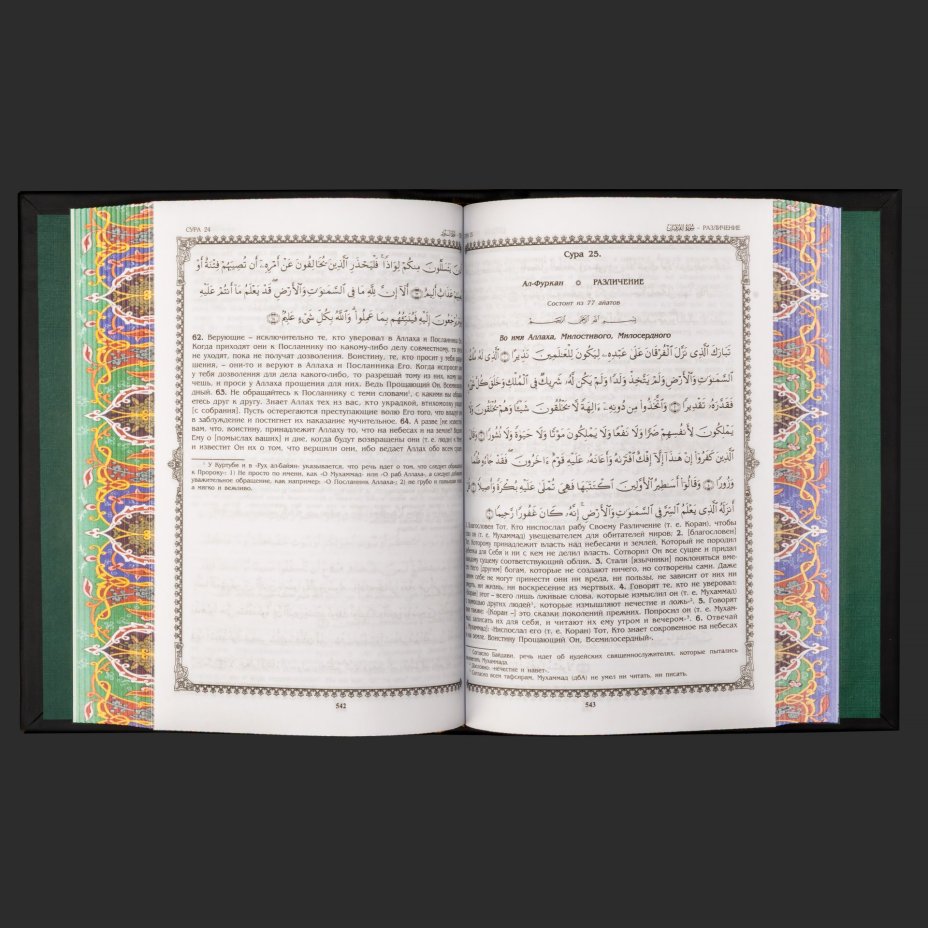 СУРА 24
ـنَ يَتَسَلَّلُونَ مِنكُمْ لِوَاذًا فَلْيَحْذَرِ الَّذِينَ يُخَالِفُونَ عَنْ أَمْرِهِ أَن تُصِيبَهُمْ فِتْنَةٌ أَوْ
عَذَابٌ أَلِيمٌ أَلَا إِنَّ لِلَّهِ مَا فِي السَّمَاوَاتِ وَالْأَرْضِ قَدْ يَعْلَمُ مَا أَنتُمْ عَلَيْهِ
يُرْجَعُونَ إِلَيْهِ فَيُنَبِّئُهُم بِمَا عَمِلُوا وَاللَّهُ بِكُلِّ شَيْءٍ عَلِيمٌ
62. Верующие – исключительно те, кто уверовал в Аллаха и Посланника
Когда приходят они к Посланнику по какому-либо делу совместному, то
не уходят, пока не получат дозволения. Воистину, те, кто просит у тебя
шения, – они-то и веруют в Аллаха и Посланника Его. Когда испросят
у тебя дозволения для дела какого-либо, то разрешай тому из них, кому
чешь, и проси у Аллаха прощения для них. Ведь Прощающий Он,
дный. 63. Не обращайтесь к Посланнику с теми словами¹, с какими вы
етесь друг к другу. Знает Аллах тех из вас, кто украдкой, втихомолку
[с собрания]. Пусть остерегаются преступающие волю Его того, что
в заблуждение и постигнет их наказание мучительное. 64. А разве [не
вам, что, воистину, принадлежит Аллаху то, что на небесах и на земле?
Ему о [помыслах ваших] и дне, когда будут возвращены они (т. е. люди) к
и известит Он их о том, что вершили они, ибо ведает Аллах обо всем
¹ У Куртуби и в «Рух ал-Байян» указывается, что речь идет о том, что следует
к Пророку»: 1) Не просто по имени, как «О Мухаммад» или «О раб Аллаха», а следует
уважительное обращение, как например: «О Посланник Аллаха»; 2) не грубо и
а мягко и вежливо.
542
سُورَةُ الْفُرْقَانِ – РАЗЛИЧЕНИЕ
Сура 25.
Ал-Фуркан ✡ РАЗЛИЧЕНИЕ
Состоит из 77 айатов
بِسْمِ اللَّهِ الرَّحْمَٰنِ الرَّحِيمِ
Во имя Аллаха, Милостивого, Милосердного
تَبَارَكَ الَّذِي نَزَّلَ الْفُرْقَانَ عَلَىٰ عَبْدِهِ لِيَكُونَ لِلْعَالَمِينَ نَذِيرًا الَّذِي لَهُ مُلْكُ
السَّمَاوَاتِ وَالْأَرْضِ وَلَمْ يَتَّخِذْ وَلَدًا وَلَمْ يَكُن لَّهُ شَرِيكٌ فِي الْمُلْكِ وَخَلَقَ كُلَّ
فَقَدَّرَهُ تَقْدِيرًا وَاتَّخَذُوا مِن دُونِهِ آلِهَةً لَّا يَخْلُقُونَ شَيْئًا وَهُمْ يُخْلَقُونَ وَلَا
يَمْلِكُونَ لِأَنفُسِهِمْ ضَرًّا وَلَا نَفْعًا وَلَا يَمْلِكُونَ مَوْتًا وَلَا حَيَاةً وَلَا نُشُورًا وَقَالَ
الَّذِينَ كَفَرُوا إِنْ هَٰذَا إِلَّا إِفْكٌ افْتَرَاهُ وَأَعَانَهُ عَلَيْهِ قَوْمٌ آخَرُونَ فَقَدْ جَاءُوا ظُلْمًا
وَزُورًا وَقَالُوا أَسَاطِيرُ الْأَوَّلِينَ اكْتَتَبَهَا فَهِيَ تُمْلَىٰ عَلَيْهِ بُكْرَةً وَأَصِيلًا قُلْ
أَنزَلَهُ الَّذِي يَعْلَمُ السِّرَّ فِي السَّمَاوَاتِ وَالْأَرْضِ إِنَّهُ كَانَ غَفُورًا رَّحِيمًا
1. Благословен Тот, Кто ниспослал рабу Своему Различение (т. е. Коран), чтобы
он (т. е. Мухаммад) увещевателем для обитателей миров; 2. [благословен]
Которому принадлежит власть над небесами и землей, Который не породил
для Себя и ни с кем не делил власть. Сотворил Он все сущее и придал
сущему соответствующий облик. 3. Стали [язычники] поклоняться
[другим] богам, которые не создают ничего, но сотворены сами. Даже
себе не могут принести они ни вреда, ни пользы, не зависят от них ни
ни жизнь, ни воскресение из мертвых. 4. Говорят те, кто не уверовал:
[этот] – всего лишь лживые слова, которые измыслил он (т. е. Мухаммад)
других людей¹, которые измышляют нечестие и ложь»². 5. Говорят
также: «[Коран –] это сказки поколений прежних. Попросил он (т. е. Мухам-
записать их для себя, и читают их ему утром и вечером»³. 6. Отвечай
Мухаммад): «Ниспослал его (т. е. Коран) Тот, Кто знает сокровенное на небесах
земле. Воистину Прощающий Он, Всемилосердный»,
¹ Согласно Байдави, речь идет об иудейских священнослужителях, которые пытались
Мухаммада.
² Дословно: «нечестие и навет».
³ Согласно всем тафсирам, Мухаммад (дбА) не умел ни читать, ни писать.
543